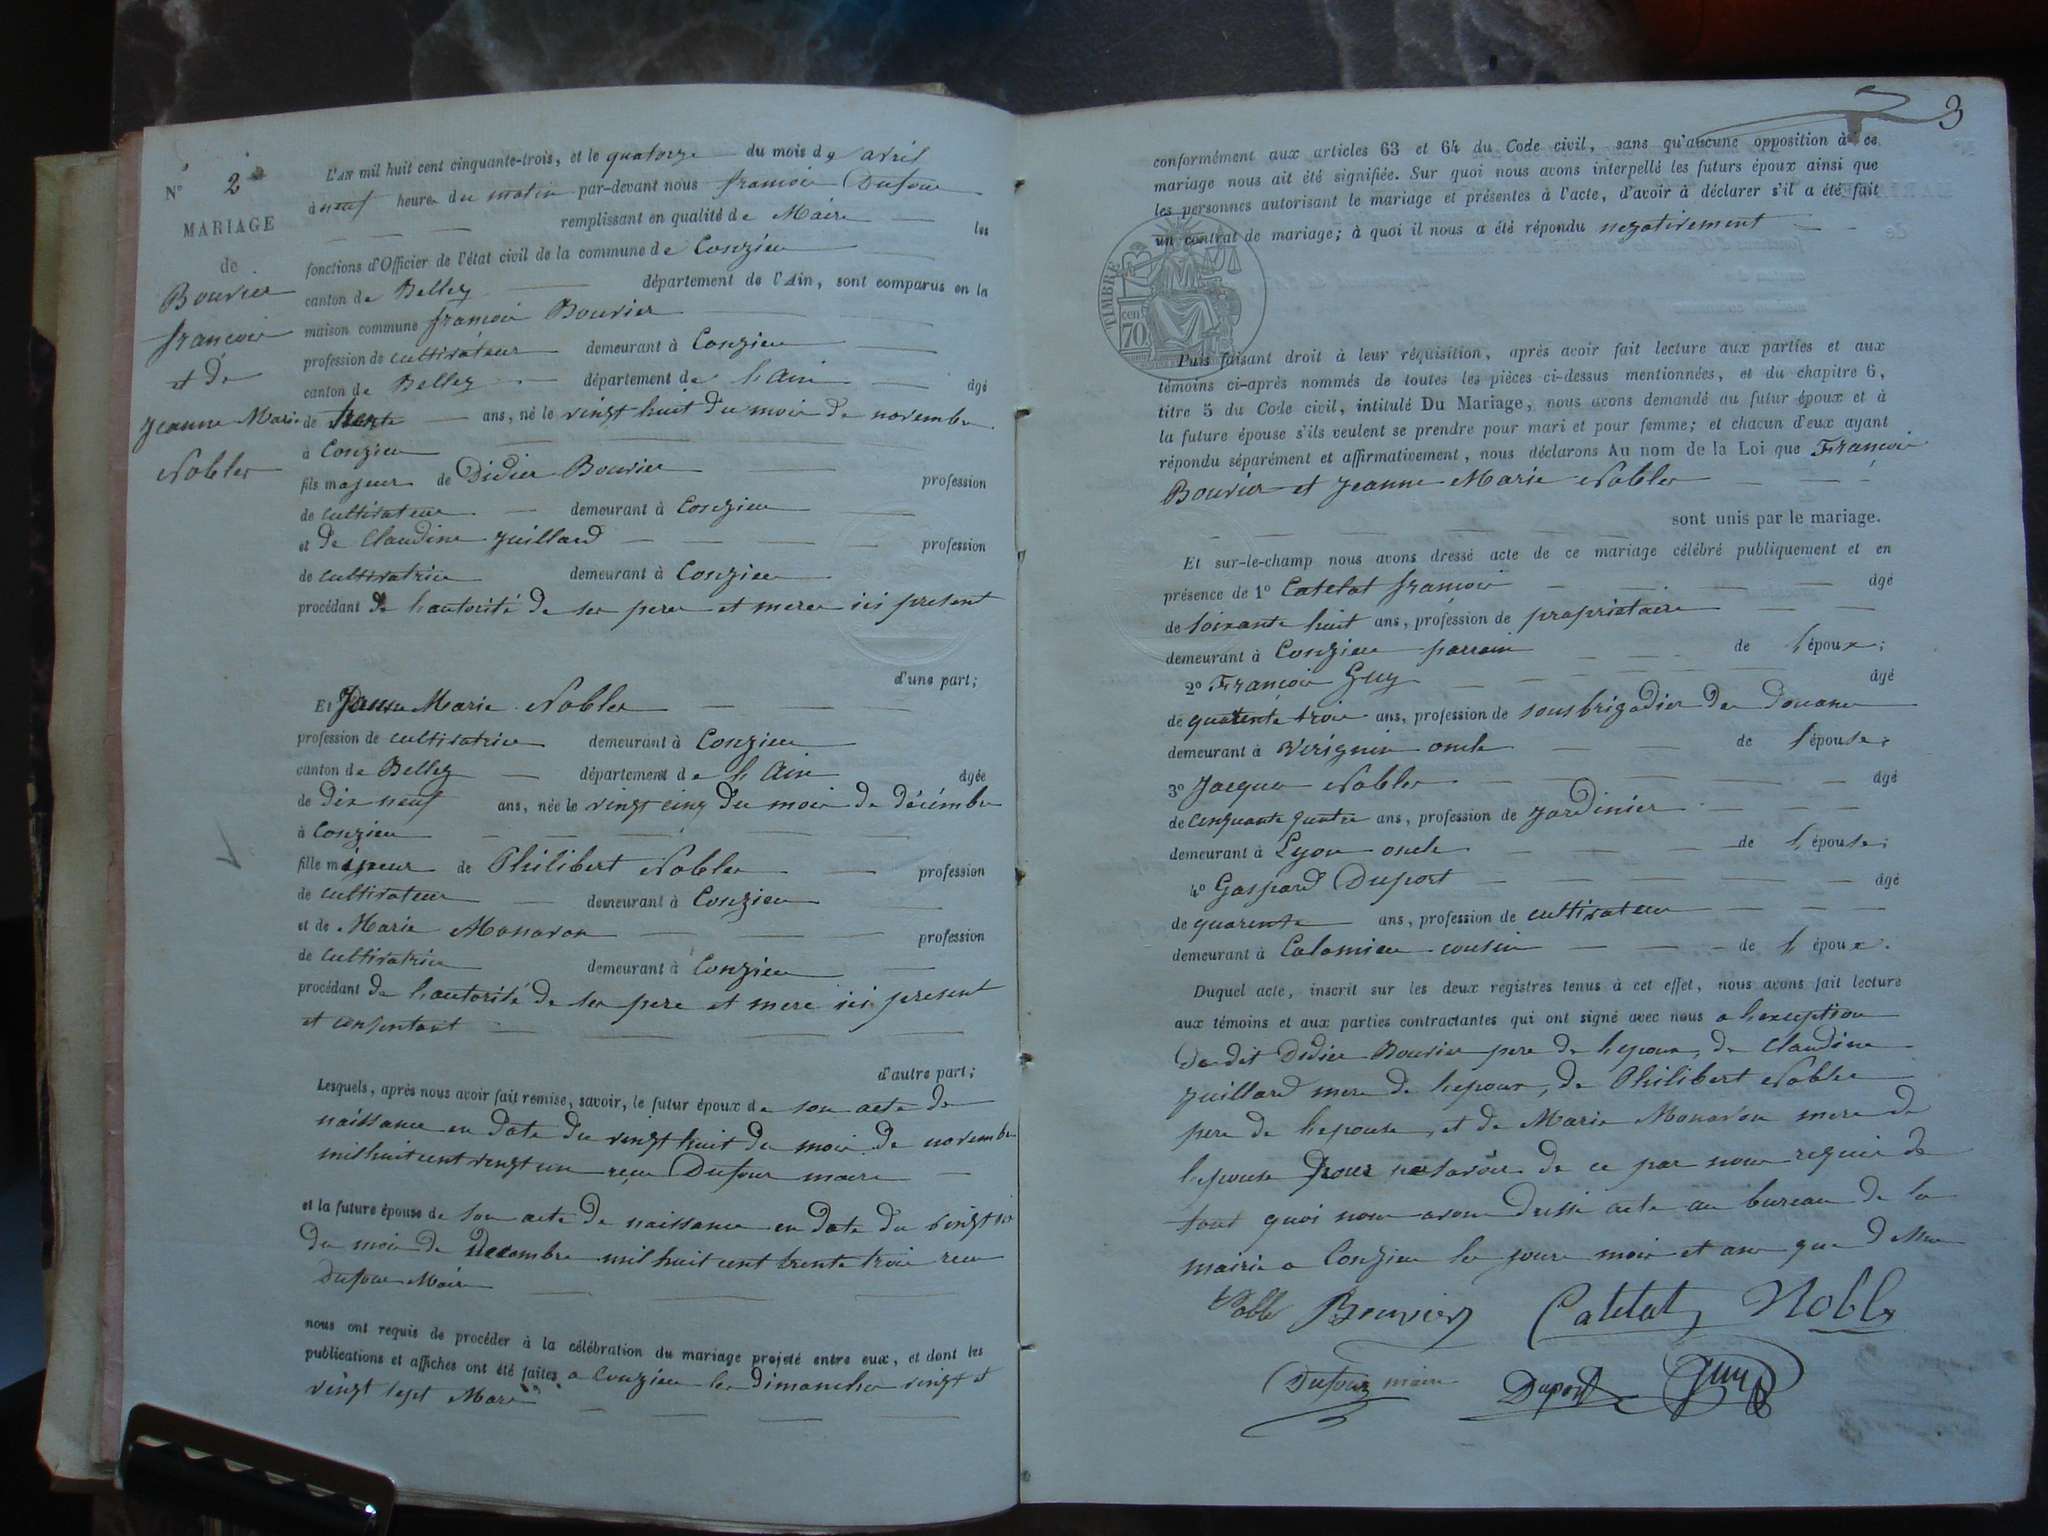 N° 2
MARIAGE
de
Bouvier
françois
et de
Jeanne Marie
Nobles
L'AN mil huit cent cinquante-trois, et le quatorze du mois de avril
à neuf heure du matin par-devant nous françois Dufour
remplissant en qualité de Maire les
fonctions d'Officier de l'état civil de la commune de Conzieu
canton de Belley département de l'Ain, sont comparus en la
maison commune françois Bouvier
profession de cultivateur demeurant à Conzieu
canton de Belley département de l Ain âgé
de trente ans, né le vingt huit du mois de novembre
à Conzieu
fils majeur de Didier Bouvier profession
de cultivateur demeurant à Conzieu
et de Claudine Juillard profession
de cultivatrice demeurant à Conzieu
procédant de l autorité de ses pere et mere ici present
d'une part;
Et Jeanne Marie Nobles
profession de cultivatrice demeurant à Conzieu
canton de Belley département de l Ain âgée
de dix neuf ans, née le vingt cinq du mois de décémbre
à Conzieu
fille mineur de Philibert Nobles profession
de cultivateur demeurant à Conzieu
et de Marie Monavon profession
de cultivatrice demeurant à Conzieu
procédant de l autorité de ses pere et mere ici present
et consentant
d'autre part;
Lesquels, après nous avoir fait remise, savoir, le futur époux de son acte de
naissance en date du vingt huit du mois de novembre
mil huit cent vingt un reçu Dufour maire
et la future épouse de son acte de naissance en date du vingt
du mois de decembre mil huit cent trente trois recu
Dufour Maire
nous ont requis de procéder à la célébration du mariage projeté entre eux, et dont les
publications et affiches ont été faites a Conzieu les dimanches vingt et
vingt sept Mars
3
conformément aux articles 63 et 64 du Code civil, sans qu'aucune opposition à ce
mariage nous ait été signifiée. Sur quoi nous avons interpellé les futurs époux ainsi que
les personnes autorisant le mariage et présentes à l'acte, d'avoir à déclarer s'il a été fait
un contrat de mariage; à quoi il nous a été répondu negativement
TIMBRE
70
cen
Puis faisant droit à leur réquisition, après avoir fait lecture aux parties et aux
témoins ci-après nommés de toutes les pièces ci-dessus mentionnées, et du chapitre 6,
titre 5 du Code civil, intitulé Du Mariage, nous avons demandé au futur époux et à
la future épouse s'ils veulent se prendre pour mari et pour femme; et chacun d'eux ayant
répondu séparément et affirmativement, nous déclarons Au nom de la Loi que François
Bouvier et Jeanne Marie Nobles
sont unis par le mariage.
Et sur-le-champ nous avons dressé acte de ce mariage célébré publiquement et en
présence de 1° Catelat françois âgé
de soixante huit ans, profession de propriétaire
demeurant à Conzieu parrain de l époux;
2° François Guy âgé
de quarente trois ans, profession de sous brigadier des douane
demeurant à Virignin oncle de l épouse;
3° Jacques Nobles âgé
de cinquante quatre ans, profession de jardinier
demeurant à Lyon oncle de l épouse;
4° Gaspard Duport âgé
de quarente ans, profession de cultivateur
demeurant à Colomieu cousin de l époux.
Duquel acte, inscrit sur les deux registres tenus à cet effet, nous avons fait lecture
aux témoins et aux parties contractantes qui ont signé avec nous a l exception
du dit Didier Bouvier pere de lepoux, de Claudine
Juillard mere de lepoux, de Philibert Nobles
pere de lepouse, et de Marie Monavon mere de
lepouse pour ne savoir de ce par nous requis de
tout quoi nous avons dressé acte au bureau de la
mairie a Conzieu les jours mois et ans que dessus
Noble Bouvier Catelat Nobles
Dufour maire Duport Guy